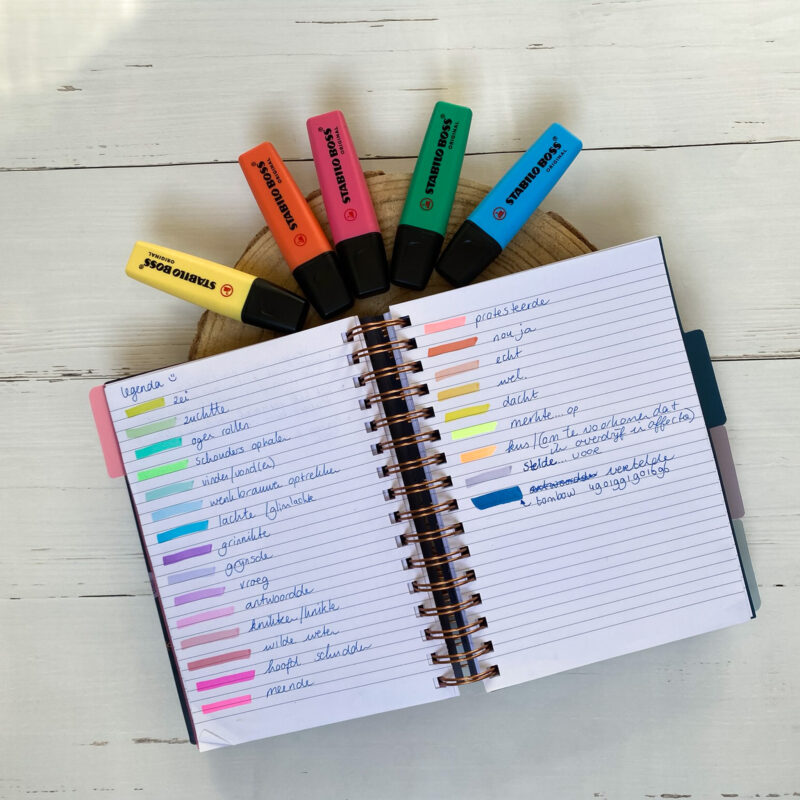 STABILO BOSS
ORIGINAL
STABILO BOSS
ORIGINAL
STABILO BOSS
ORIGINAL
STABILO BOSS
ORIGINAL
STABILO BOSS
ORIGINAL
legenda
zei
zuchtte
ogen rollen
schouders ophalen
vinden/vond(en)
wenkbrauwen optrekken
lachte/glimlachte
grinnikte
grijnsde
vroeg
antwoordde
knikken/knikte
wilde weten
hoofd schudden
meende
protesteerde
nou ja
echt
wel
dacht
merkte... op
kus/(om te voorkomen dat
ik overdrijf in affectie)
stelde... voor
antwoordden vertelde
tombow 4901991901696